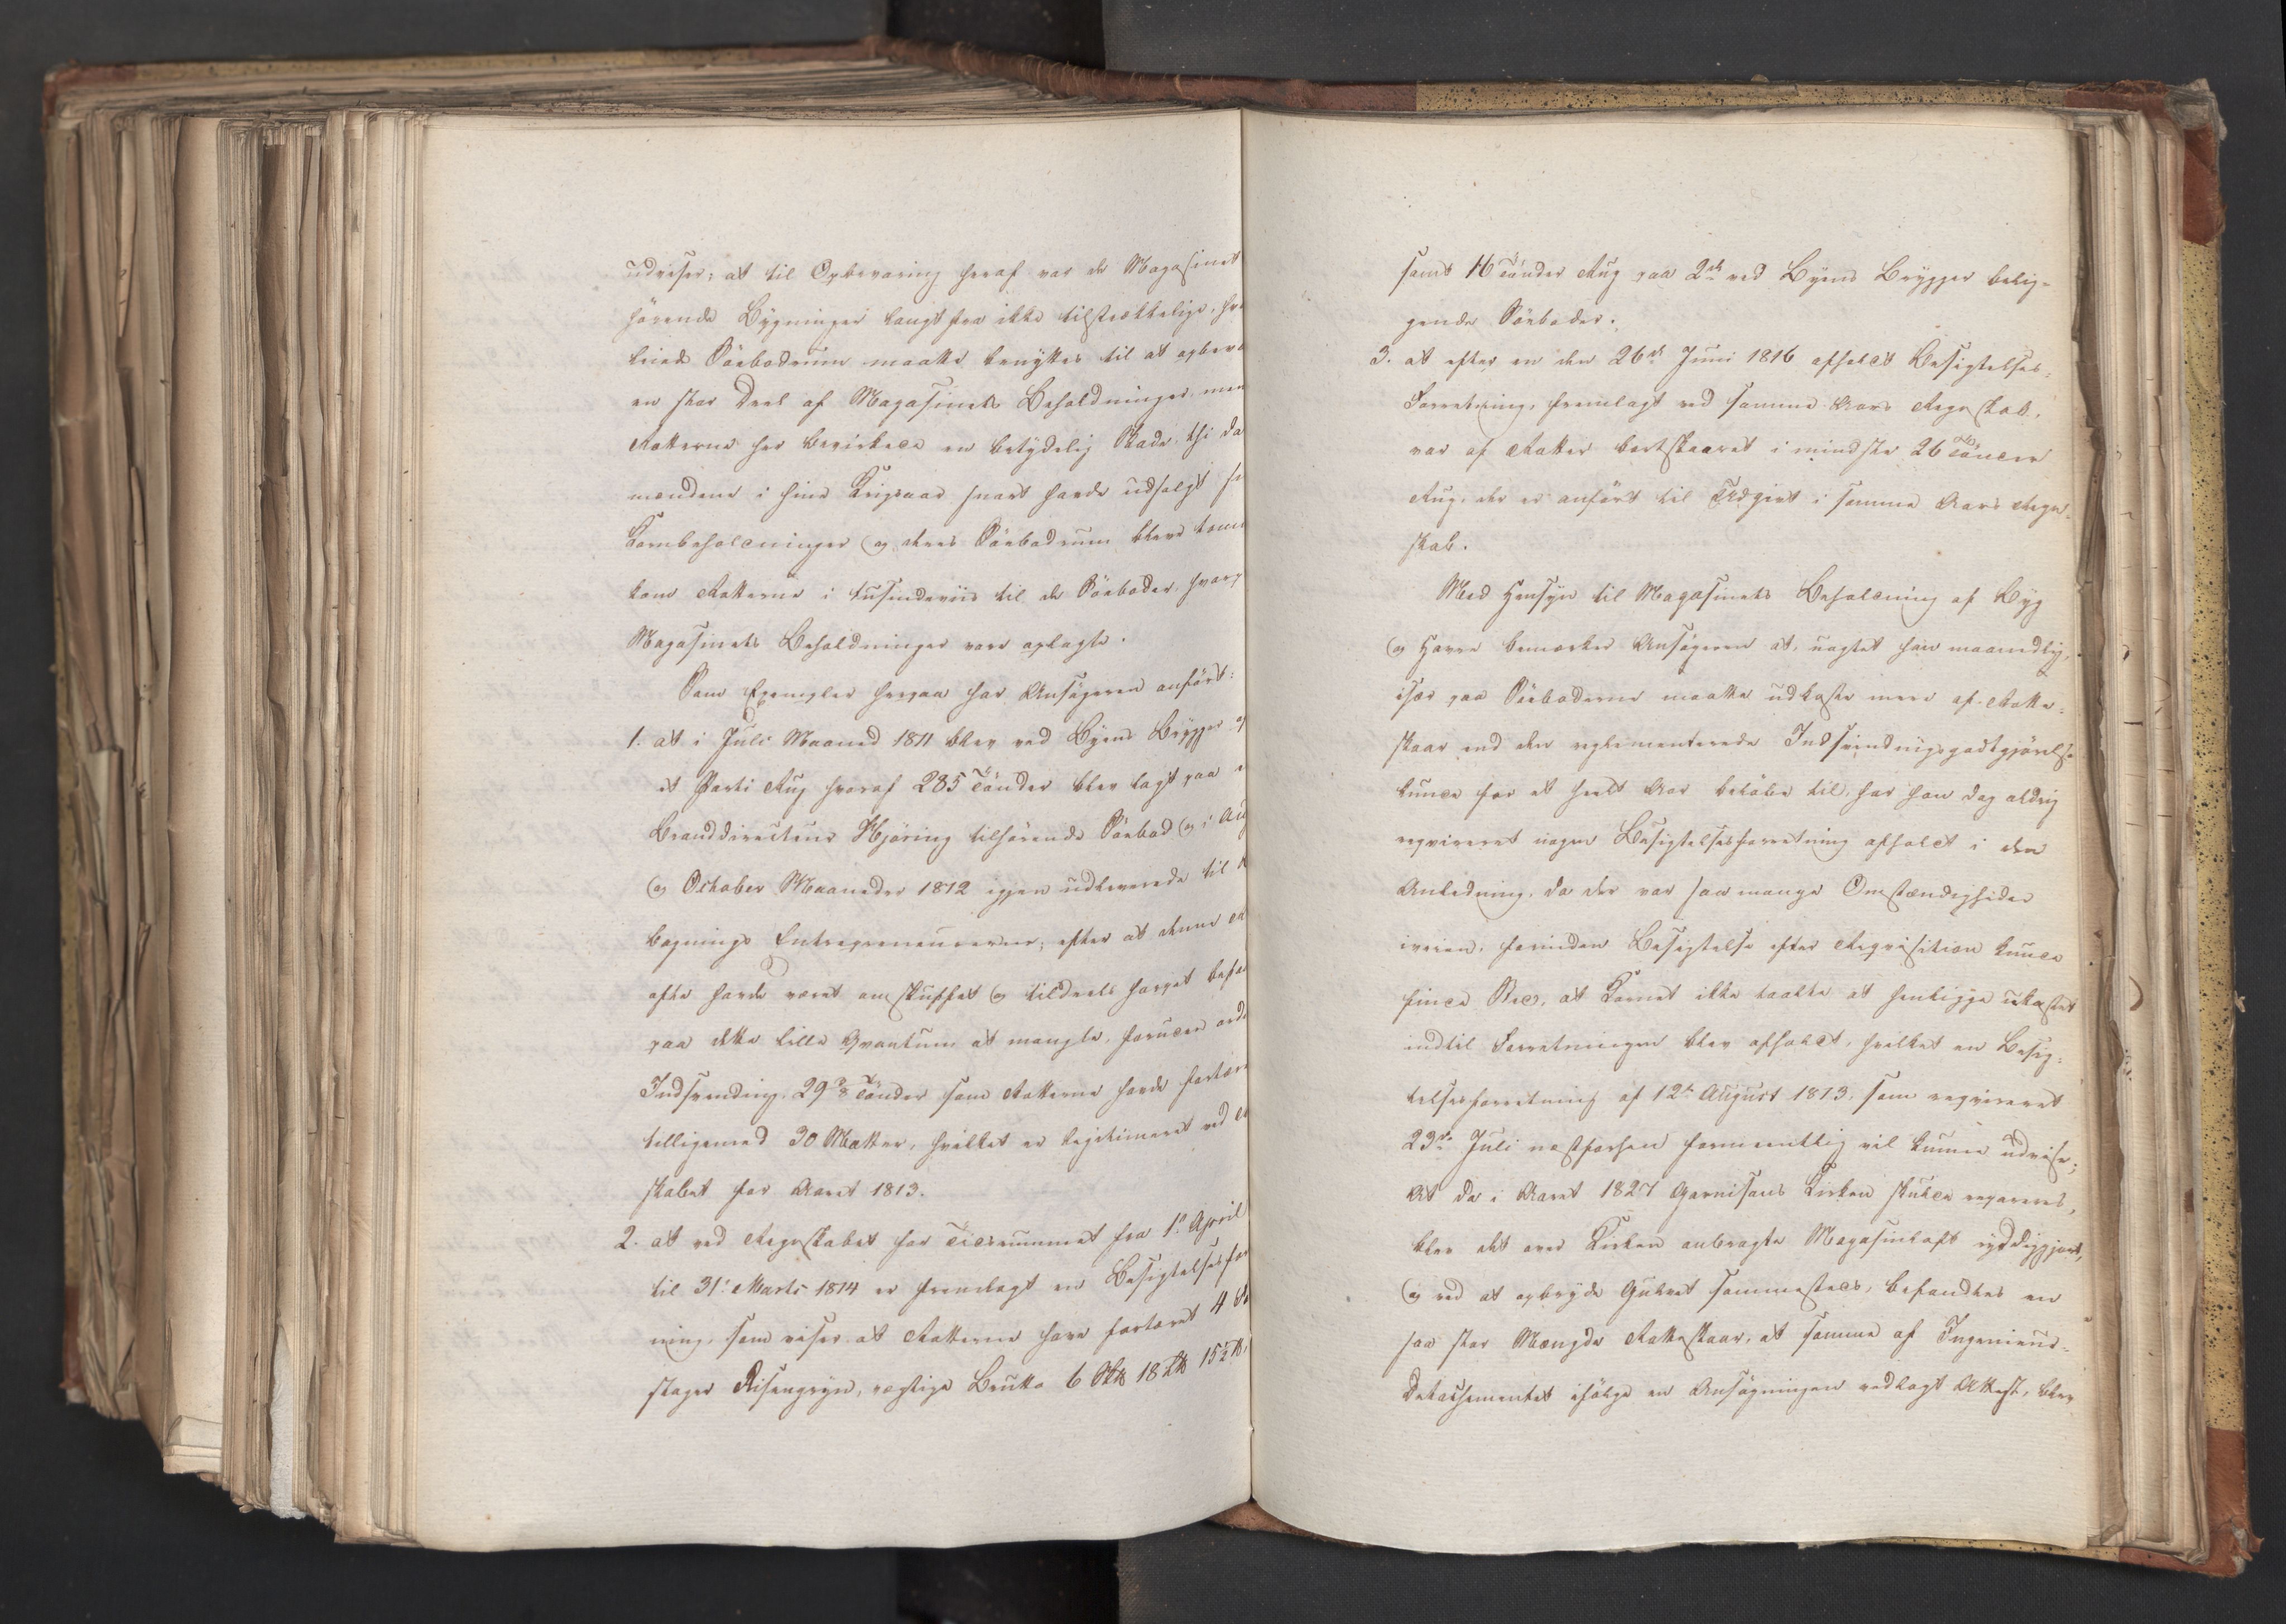 udviser, at til Opbevaring heraf var de Magasinet
hørende Bygninger langt fra ikke tilstrækkelige, hvo
leiede Søebodrum maatte benyttes til at opbeva
en stor Deel af Magasinets Beholdninger, men
Rotterne her bevirkede en betydelig Skade, thi da
mændene i hine Krigsaar snart havde udsolgt
Kornbeholdninger og deres Søebodrum bleve tom
kom Rotterne i tusindeviis til de Søeboder, hvorp
Magasinets Beholdninger vare oplagte.
Som Exempler herpaa har Ansøgeren anført:
1. at i Juli Maaned 1811 blev ved Byens Brygger
et Parti Rug hvoraf 285 Tønder blev lagt paa
Branddirecteur Hjøring tilhørende Søebod og i Aug
og October Maaneder 1812 igjen udleverede til
bagnings Entrepreneurerne, efter at denne
ofte havde været omskuffet og tildeels harpet befa
paa dette lille Qvantum at mangle, foruden ord
Indsvinding, 29 3/8 Tønder som Rotterne havde fortær
tilligemed 30 Matter, hvilket er legitimeret ved
skabet for Aaret 1813.
2. at ved Regnskabet for Tidsrummet fra 1ste April
til 31te Marts 1814 er fremlagt en Besigtelsesfor
ning, som viser at Rotterne have fortæret 4
stager Risengryn, vægtige Brutto 6 Sk℔ 18 L℔ 15½ ℔,
samt 16 Tønder Rug paa 2de ved Byens Brygger belig-
gende Søeboder.
3. at efter en den 26de Juni 1816 afholdt Besigtelses-
Forretning, fremlagt ved samme Aars Regnskab,
var af Rotter bortskaaret i mindste 26 Tønder
Rug, der er anført til Udgivt i samme Aars Regn-
skab.
Med Hensyn til Magasinets Beholdning af Byg
og Havre bemærker Ansøgeren at, uagtet han maanedlig,
især paa Søeboderne maatte udkaste mere af Rotte-
skaar end den reglementerede Indsvindingsgodtgjørelse
kunde for et heelt Aar beløbe til, har han dog aldrig
reqvireret nogen Besigtelsesforretning afholdt i den
Anledning, da der var saa mange Omstændigheder
iveien, forinden Besigtelse efter Reqvisition kunde
finde Sted, at Kornet ikke taalte at henligge ukastet
indtil Forretningen blev afholdt, hvilket en Besig-
telsesforretning af 12te August 1813, som reqvireret
23de Juli næstforhen formeentlig vil kunne udvise;
At da i Aaret 1827 Garnisons Kirken skulde repareres,
blev det over Kirken anbragte Magasinloft ryddiggjort,
og ved at opbryde Gulvet sammesteds, befandtes en
saa stor Mængde Rotteskaar, at samme af Ingenieur-
Detachementet ifølge en Ansøgningen vedlagt Attest, blev